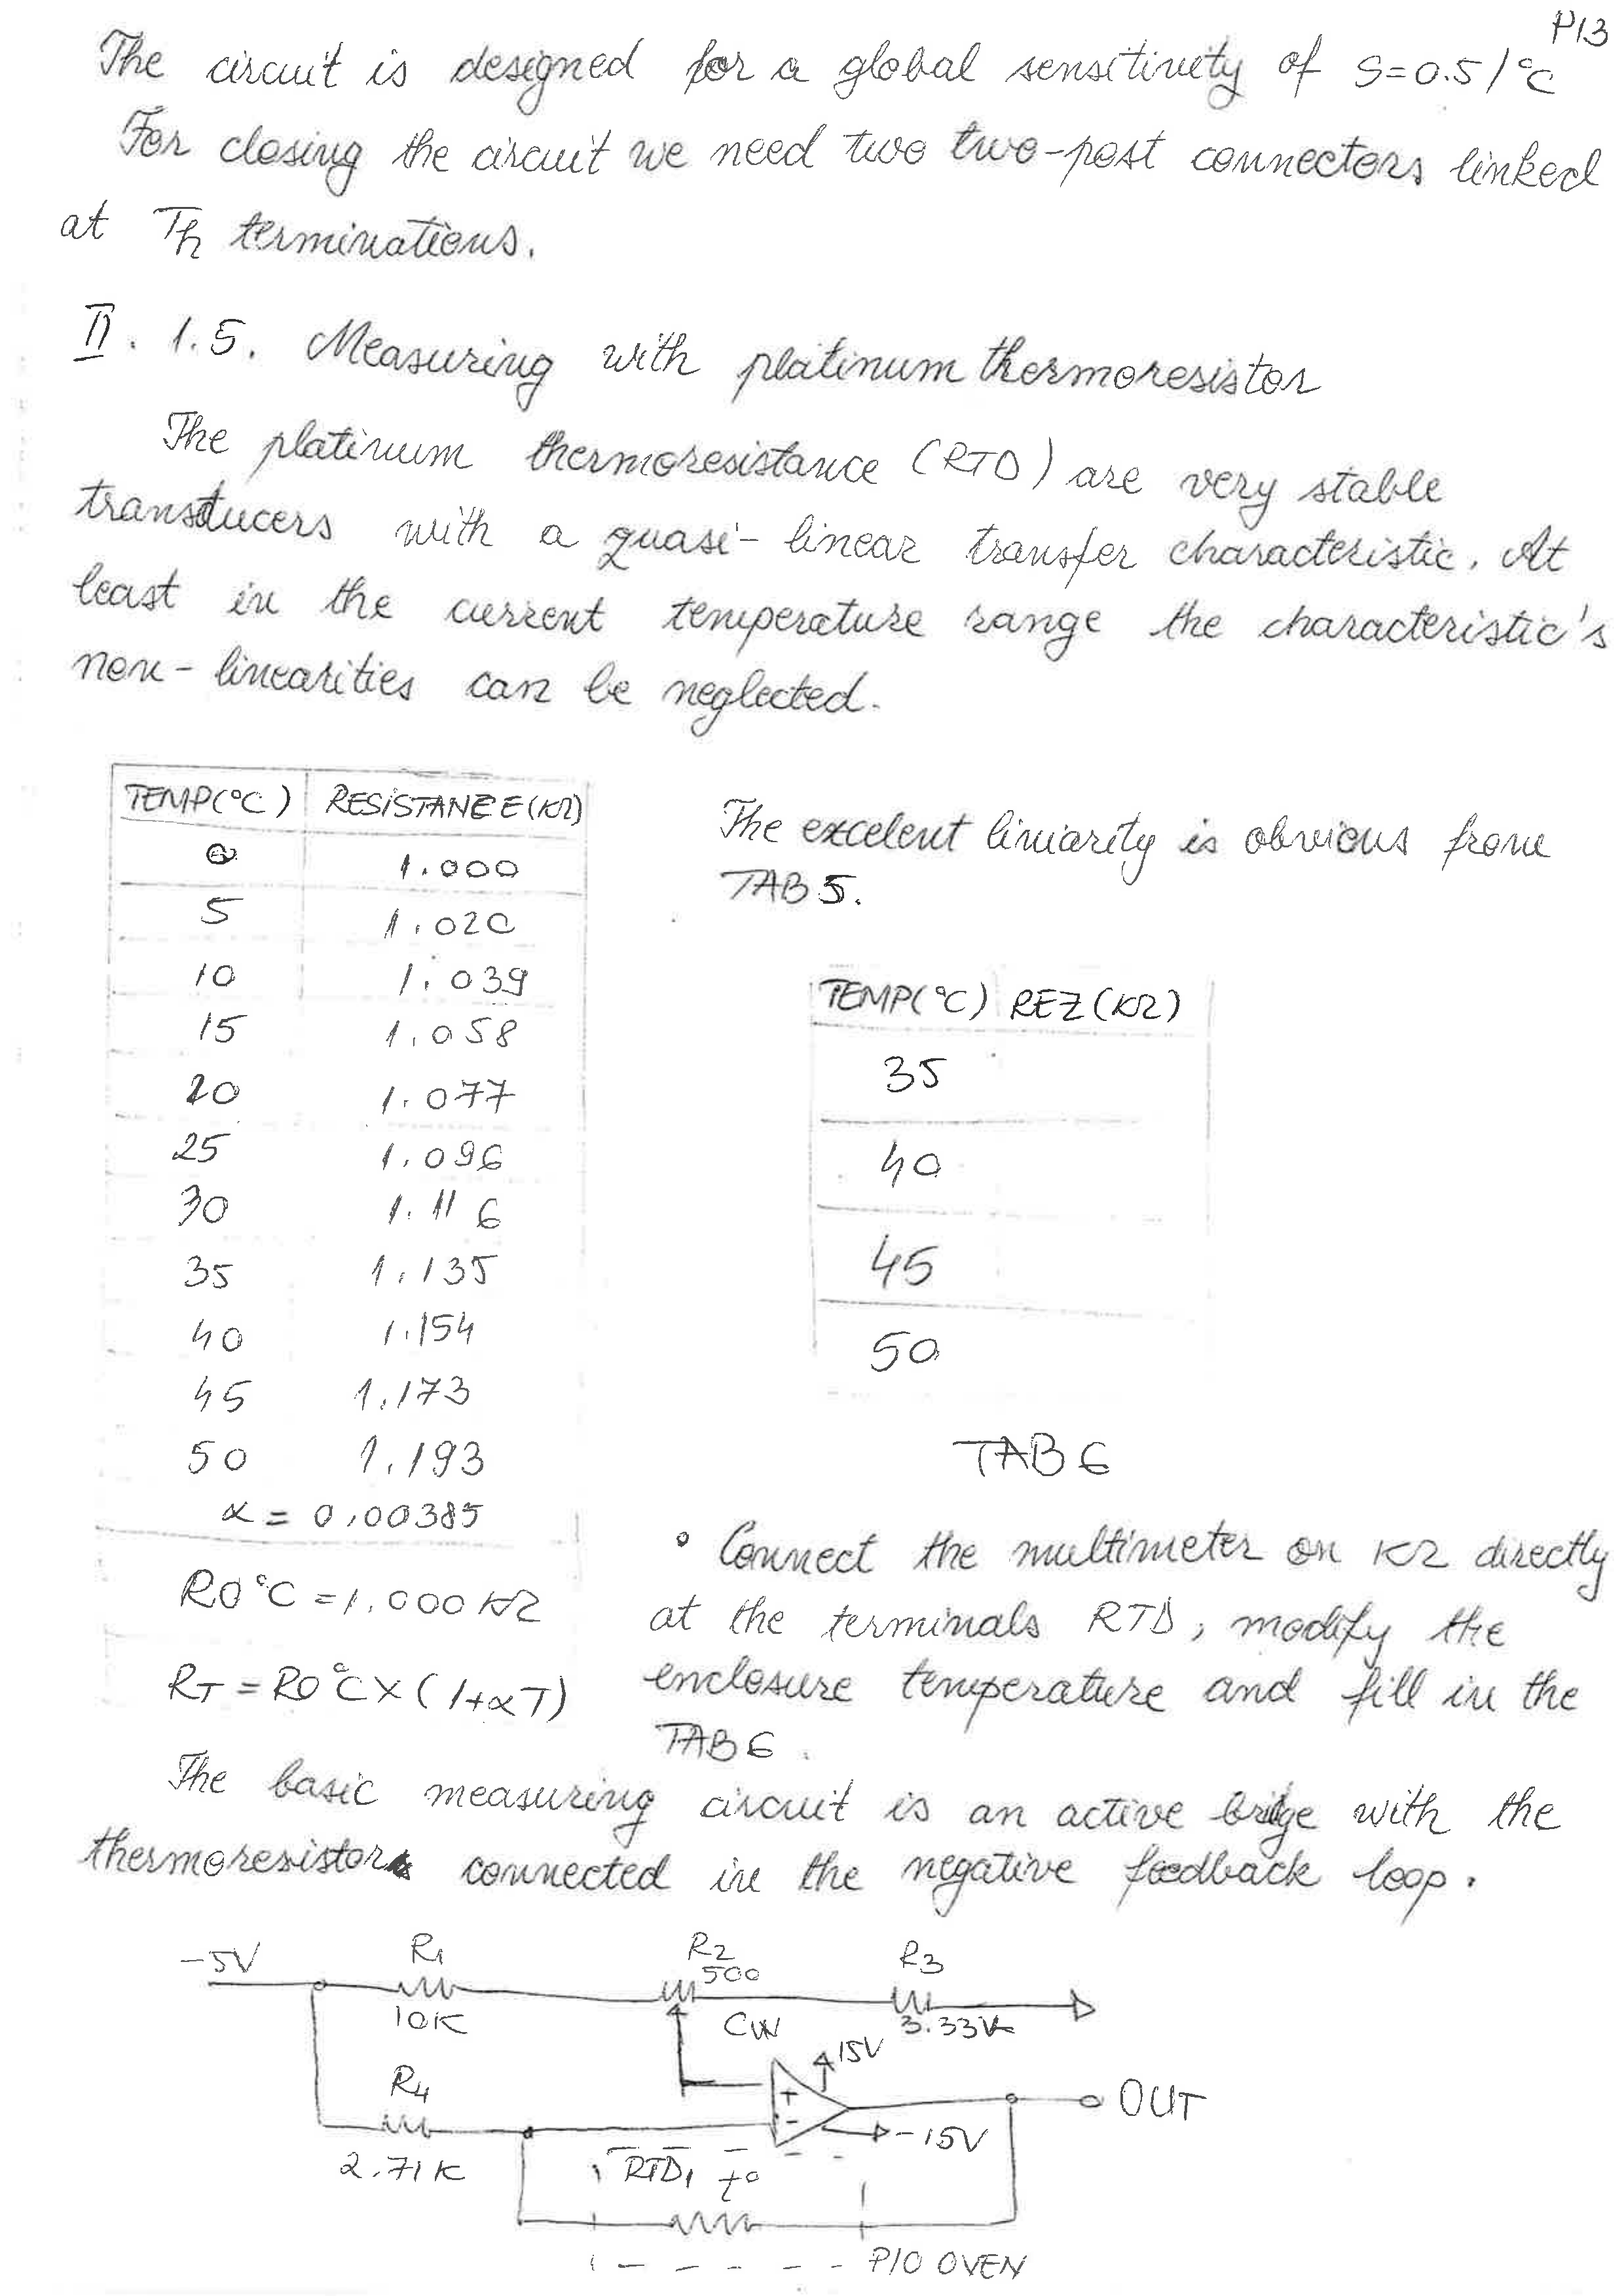 P13
The circuit is designed for a global sensitivity of S=0.5/°C
For closing the circuit we need two two-post connectors linked
at Th terminations.
II. 1.5. Measuring with platinum thermoresistor
The platinum thermoresistance (RTD) are very stable
transducers with a quasi-linear transfer characteristic. At
least in the current temperature range the characteristic's
non-linearities can be neglected.
TEMP(°C) RESISTANCE(KΩ)
0 1.000
5 1.020
10 1.039
15 1.058
20 1.077
25 1.096
30 1.116
35 1.135
40 1.154
45 1.173
50 1.193
α = 0,00385
R0°C = 1.000 KΩ
RT = R0°C X (1+αT)
The excelent liniarity is obvious from
TAB 5.
TEMP(°C) REZ(KΩ)
35
40
45
50
TAB 6
• Connect the multimeter on KΩ directly
at the terminals RTD, modify the
enclosure temperature and fill in the
TAB 6.
The basic measuring circuit is an active bridge with the
thermoresistor connected in the negative feedback loop.
-5V R1 R2 R3
500
10K CW 3.33K
15V
R4
+
-
OUT
-15V
2.71K RTD1 t°
P/O OVEN